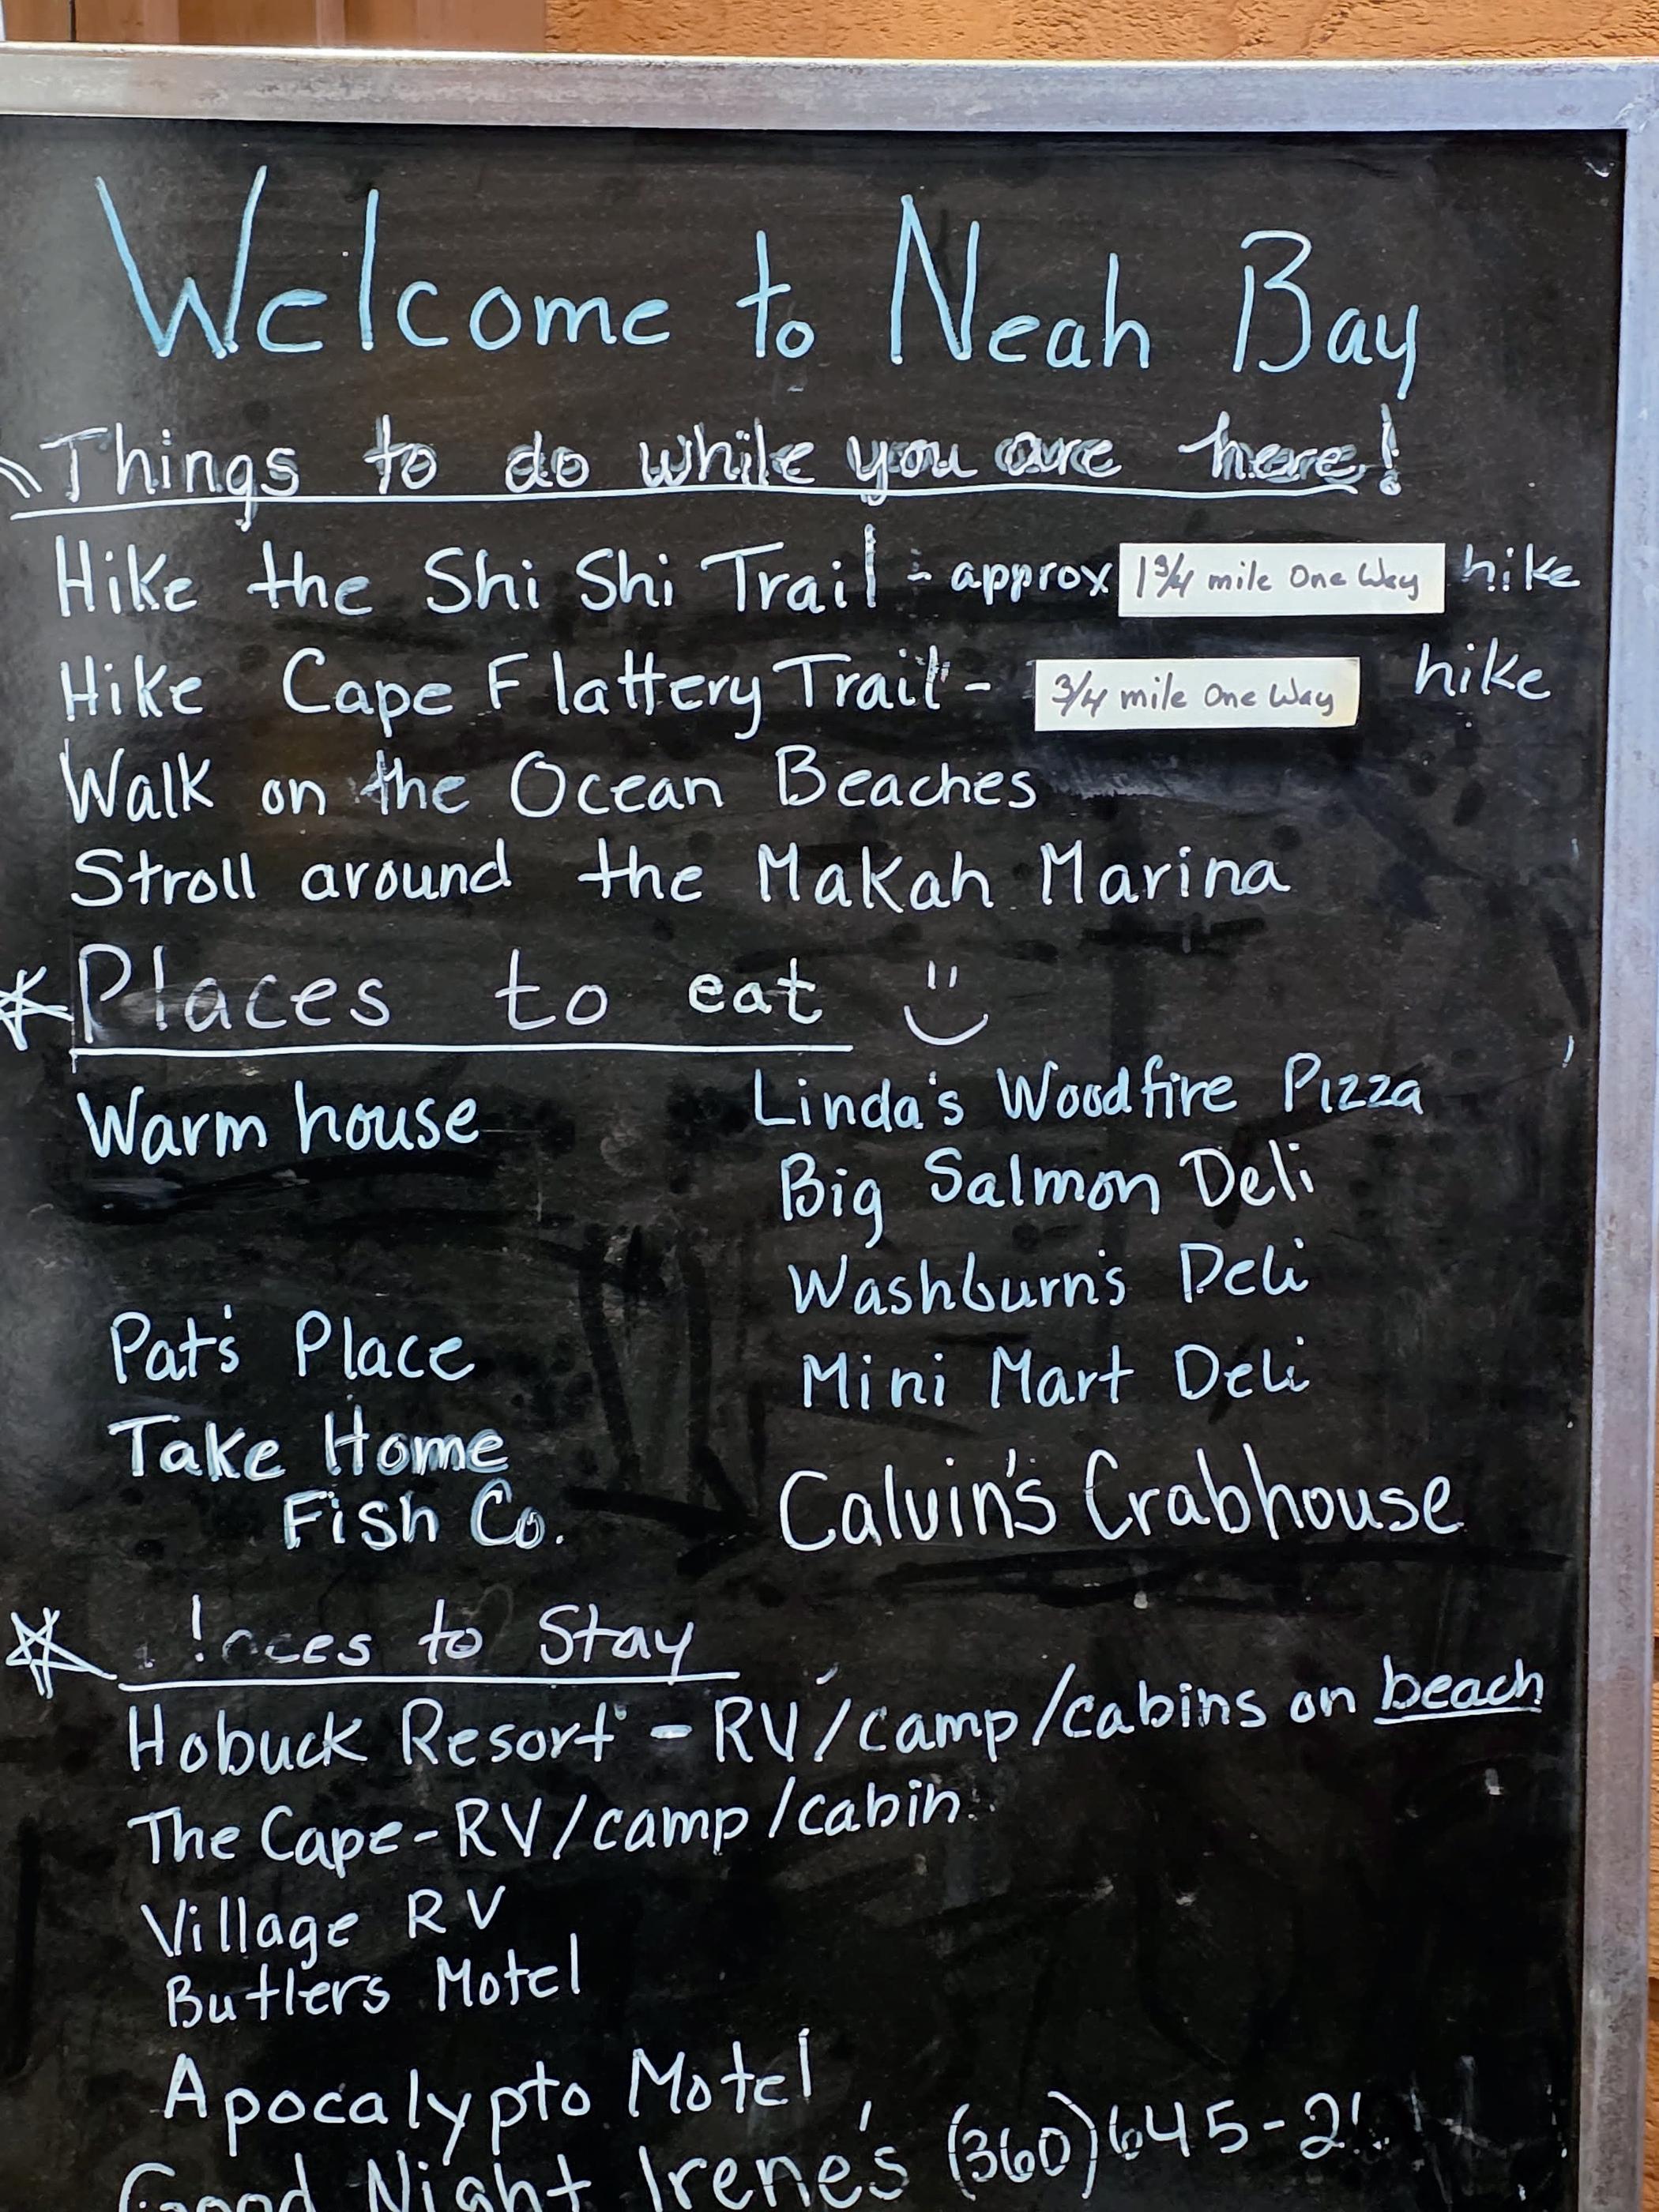 Welcome to Neah Bay
Things to do while you are here!
Hike the Shi Shi Trail - approx 1 3/4 mile One Way hike
Hike Cape Flattery Trail - 3/4 mile One Way hike
Walk on the Ocean Beaches
Stroll around the Makah Marina
Places to eat
Warm house
Pat's Place
Take Home
Fish Co.
Linda's Woodfire Pizza
Big Salmon Deli
Washburn's Deli
Mini Mart Deli
Calvin's Crabhouse
to Stay
Hobuck Resort - RV/camp/cabins on beach
The Cape - RV/camp/cabin
Village RV
Butlers Motel
Apocalypto Motel
Good Night Irene's (360)645-2